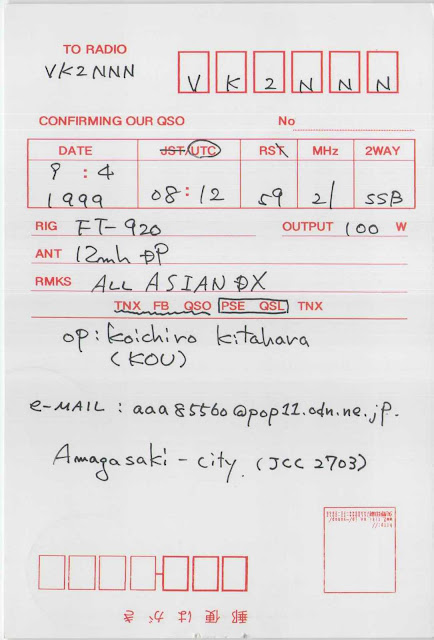 TO RADIO
VK2NNN
V K 2 N N N
CONFIRMING OUR QSO No
DATE JST/UTC RST MHz 2WAY
9 : 4
1999 08:12 59 21 SSB
RIG FT-920 OUTPUT 100 W
ANT 12mh DP
RMKS ALL ASIAN DX
TNX FB QSO PSE QSL TNX
op: Koichiro Kitahara
(KOU)
e-MAIL : aaa85560@pop11.odn.ne.jp.
Amagasaki-city (JCC 2703)
郵便はがき